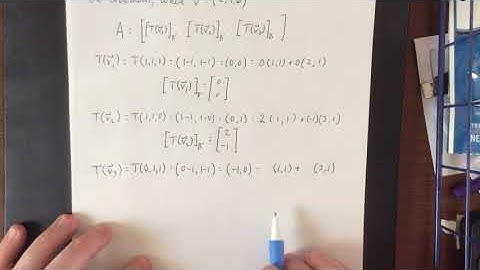 v = (2,1,0)
A = [ [T(v₁)]_B [T(v₂)]_B [T(v₃)]_B ]
T(v₁) = T(1,1,1) = (1-1, 1-1) = (0,0) = 0(1,1) + 0(2,1)
[T(v₁)]_B = [0 0]
T(v₂) = T(1,1,0) = (1-1, 1-0) = (0,1) = 2(1,1) + (-1)(2,1)
[T(v₂)]_B = [2 -1]
T(v₃) = T(0,1,1) = (0-1, 1-1) = (-1,0) = (1,1) + (2,1)